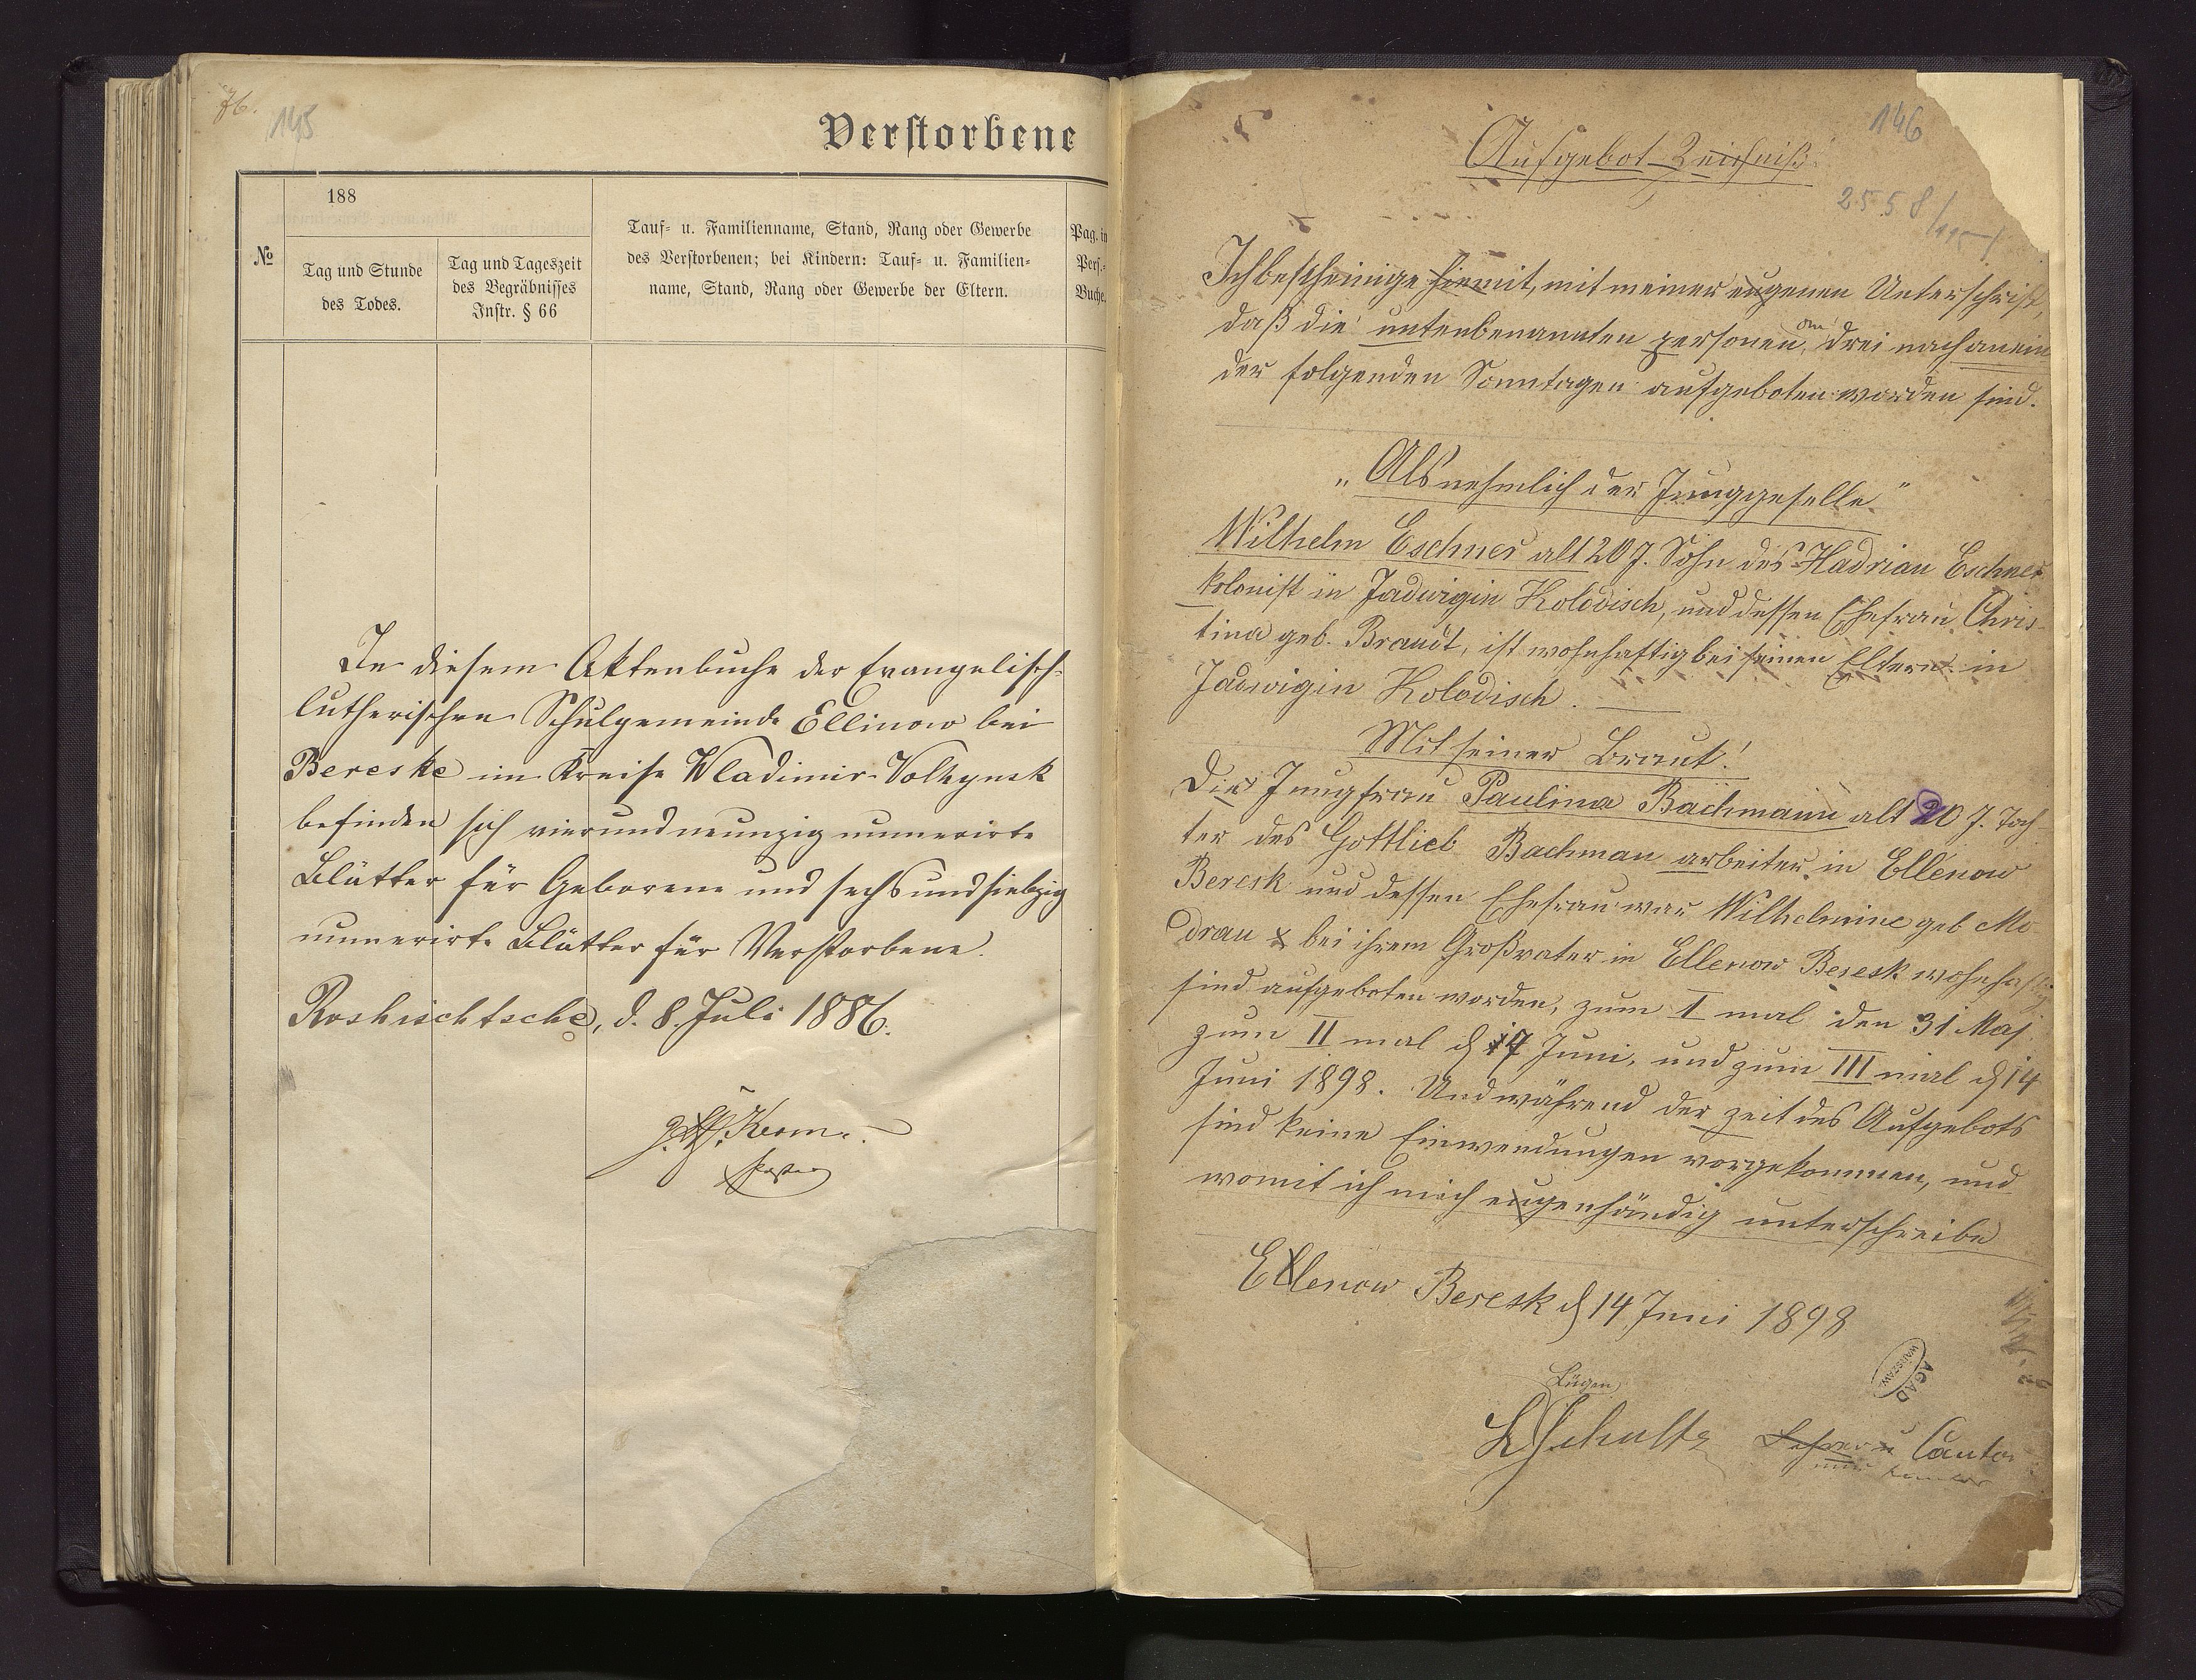 76.
145
Verstorbene
188
№
Tag und Stunde
des Todes.
Tag und Tageszeit
des Begräbnisses
Instr. § 66
Tauf- u. Familienname, Stand, Rang oder Gewerbe
des Verstorbenen; bei Kindern: Tauf- u. Familien-
name, Stand, Rang oder Gewerbe der Eltern.
Pag. in
Pers.-
Buche.
In diesem Aktenbuche der Evangelisch-
lutherischen Schulgemeinde Ellinow bei
Bereske im Kreise Wladimir-Volhynsk
befinden sich vierundneunzig numerirte
Blätter für Geborene und sechsundsiebzig
numerirte Blätter für Verstorbene.
Roshischtsche, d. 8. Juli 1886.
Kerm
Pastor
146
Aufgebot-Zeichniß.
2558
Ich bescheinige hiemit, mit meiner eugenen Unterschrift,
daß die untenbenannten personen, drei nach anein
der folgenden Sonntagen aufgeboten worden sind.
„Als nehmlich der Junggeselle"
Wilhelm Eschner alt 20 J. Sohn des Hadrian Eschner
kolonist in Jadwigin Kolodisch, und dessen Ehefrau Chris-
tina geb. Brandt, ist wohnhaftig bei seinen Eltern in
Jadwigin Kolodisch.
Mit seiner Braut!
Die Jungfrau Paulina Bachmann alt 20 J. Toch-
ter des Gottlieb Bachman arbeiter in Ellenow
Beresk und dessen Ehefrau war Wilhelmine geb Mo-
drau & bei ihrem Großvater in Ellenow Beresk wohnhaftig
sind aufgeboten worden, zum I mal den 31 Maj.
zum II mal d 7 Juni, und zum III mal d 14
Juni 1898. Und während der zeit des Aufgebots
sind keine Einwendungen vorgekommen, und
womit ich mich eugenhändig unterschreibe
Ellenow Beresk d 14 Juni 1898
AGAD
WARSZAW
L Schultz Lehrer u Cantor